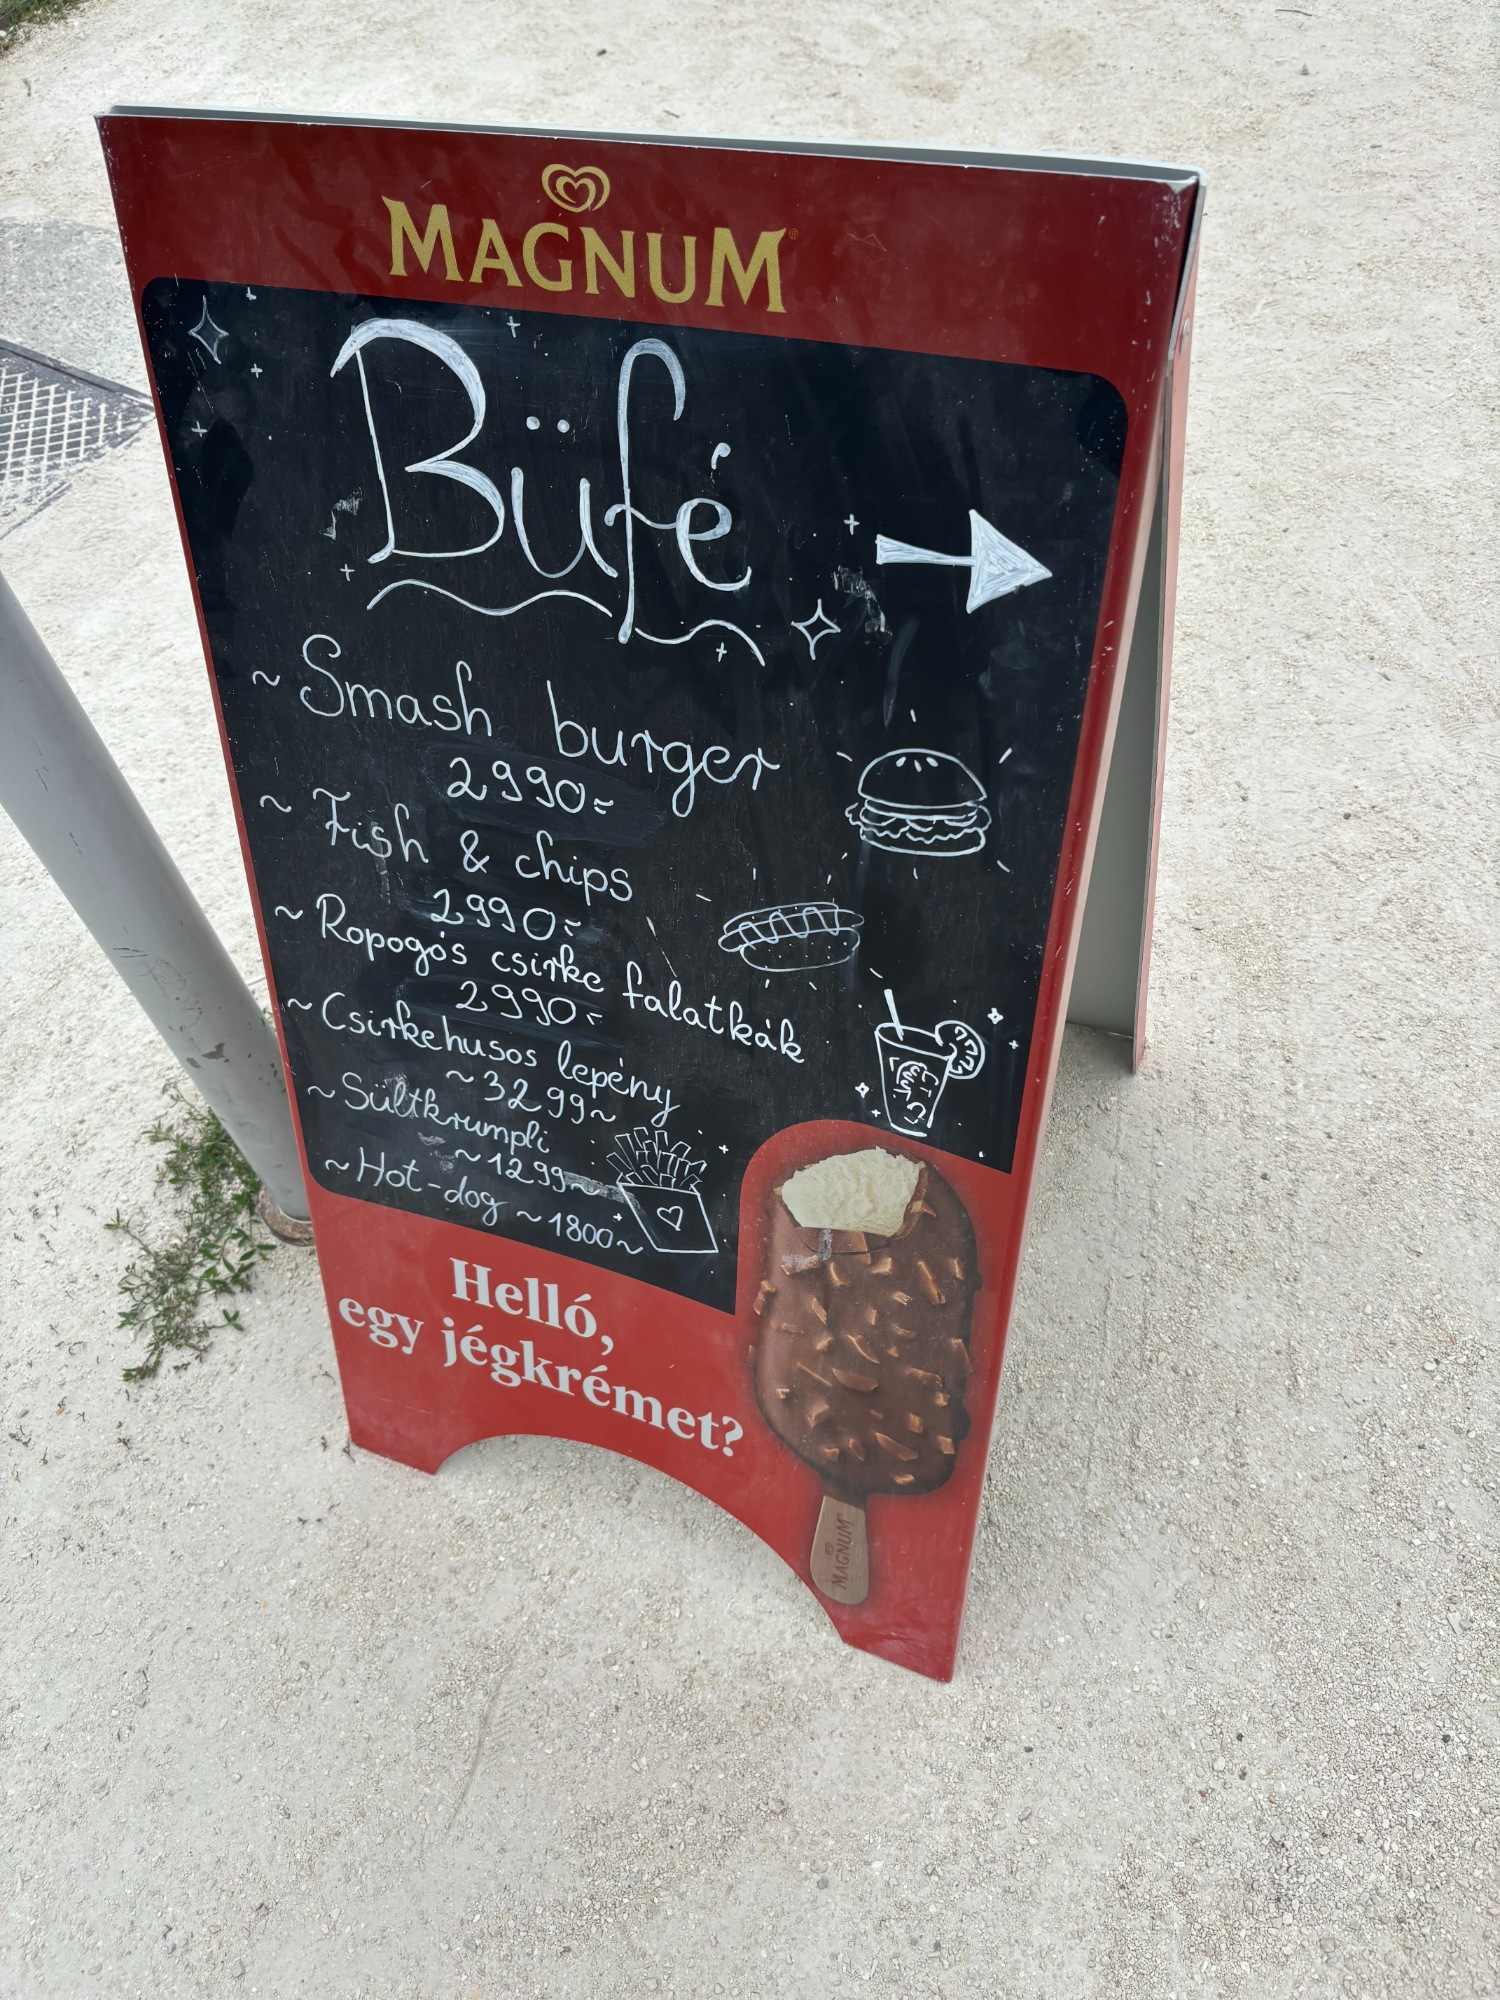 MAGNUM
Büfé
~ Smash burger
2990.-
~ Fish & chips
2990.-
~ Ropogós csirke falatkák
2990.-
~ Csirkehusos lepény
~ 3299 ~
~ Sültkrumpli
~ 1299 ~
~ Hot-dog ~ 1800 ~
Helló,
egy jégkrémet?
MAGNUM